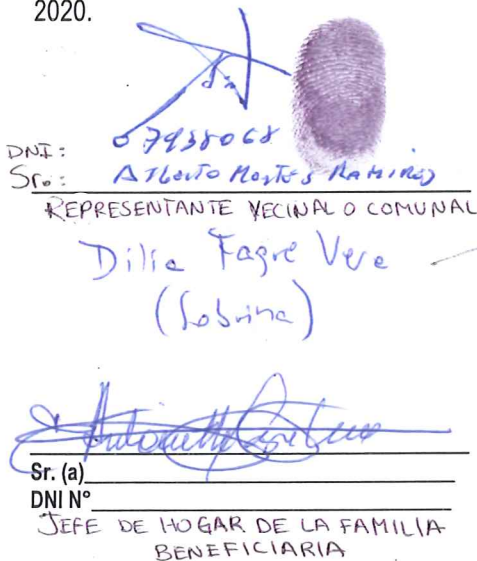 2020.
DNI: 07938068
Sr.: Alberto Montes Ramirez
REPRESENTANTE VECINAL O COMUNAL
Dilia Fagre Vera
(Sobrina)
Sr. (a)
DNI N°
JEFE DE HOGAR DE LA FAMILIA
BENEFICIARIA